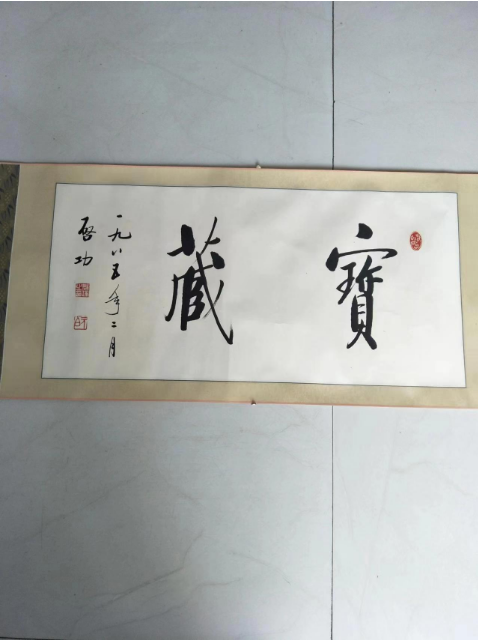 寶藏
一九八五年二月
啓功